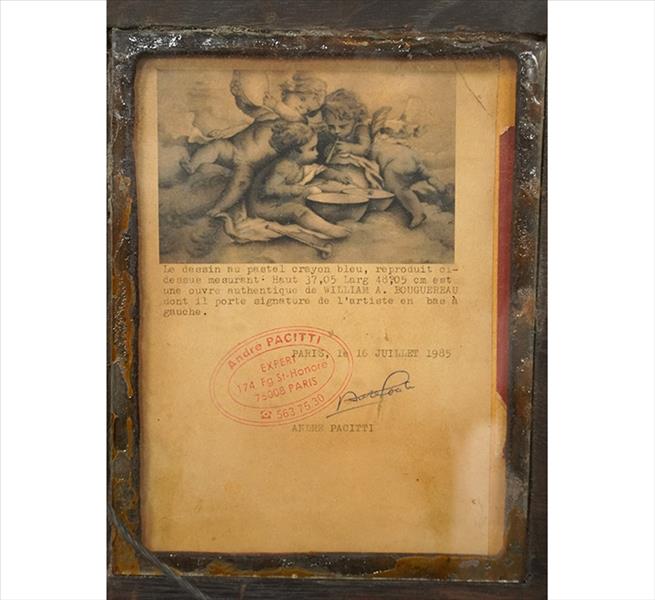 Le dessin au pastel crayon bleu, reproduit ci-
dessue mesurant· Haut 37,05 Larg 48,05 cm est
une ouvre authentique de WILLIAM A. BOUGUEREAU
dont il porte signature de l'artiste en bas à
gauche.
PARIS, le 16 JUILLET 1985
André PACITTI
EXPERT
174, Fg St-Honoré
75008 PARIS
☎ 563.75.30
ANDRE PACITTI